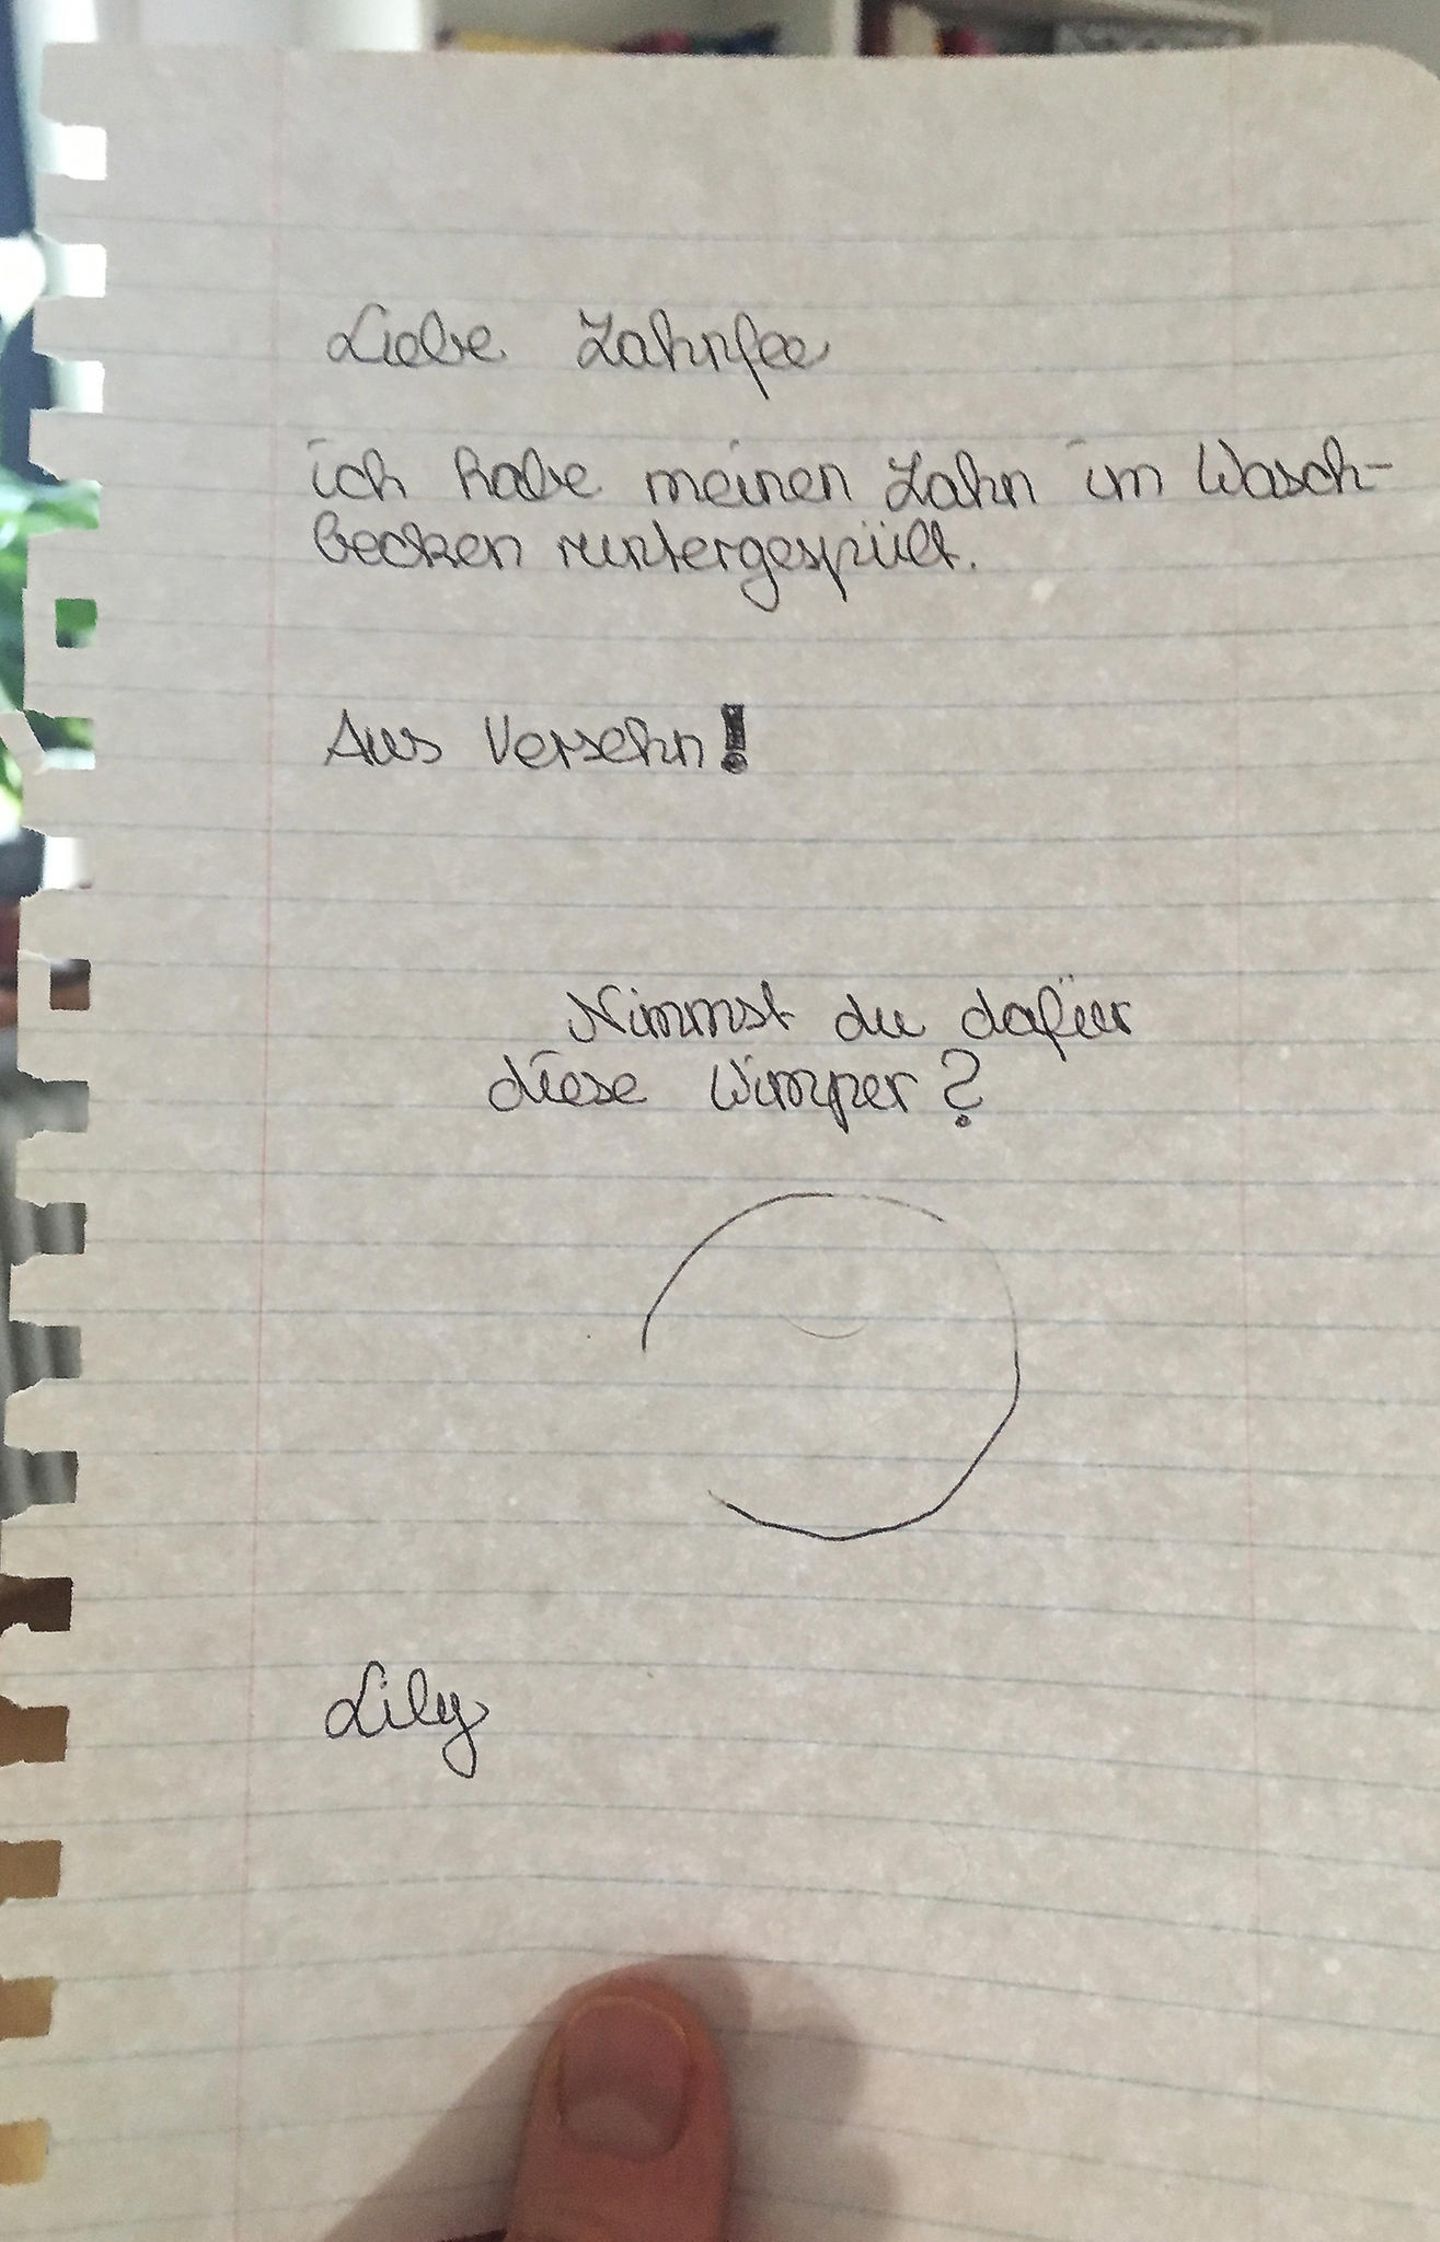 Liebe Zahnfee
ich habe meinen Zahn im Wasch-
becken runtergespült.
Aus Versehn!
Nimmst du dafür
diese Wimper?
Lily